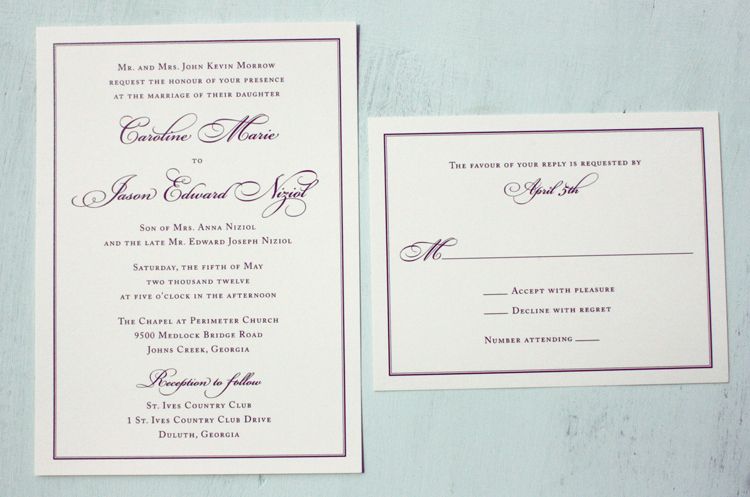 Mr. and Mrs. John Kevin Morrow
request the honour of your presence
at the marriage of their daughter
Caroline Marie
to
Jason Edward Niziol
Son of Mrs. Anna Niziol
and the late Mr. Edward Joseph Niziol
Saturday, the fifth of May
two thousand twelve
at five o'clock in the afternoon
The Chapel at Perimeter Church
9500 Medlock Bridge Road
Johns Creek, Georgia
Reception to follow
St. Ives Country Club
1 St. Ives Country Club Drive
Duluth, Georgia
The favour of your reply is requested by
April 5th
M
Accept with pleasure
Decline with regret
Number attending